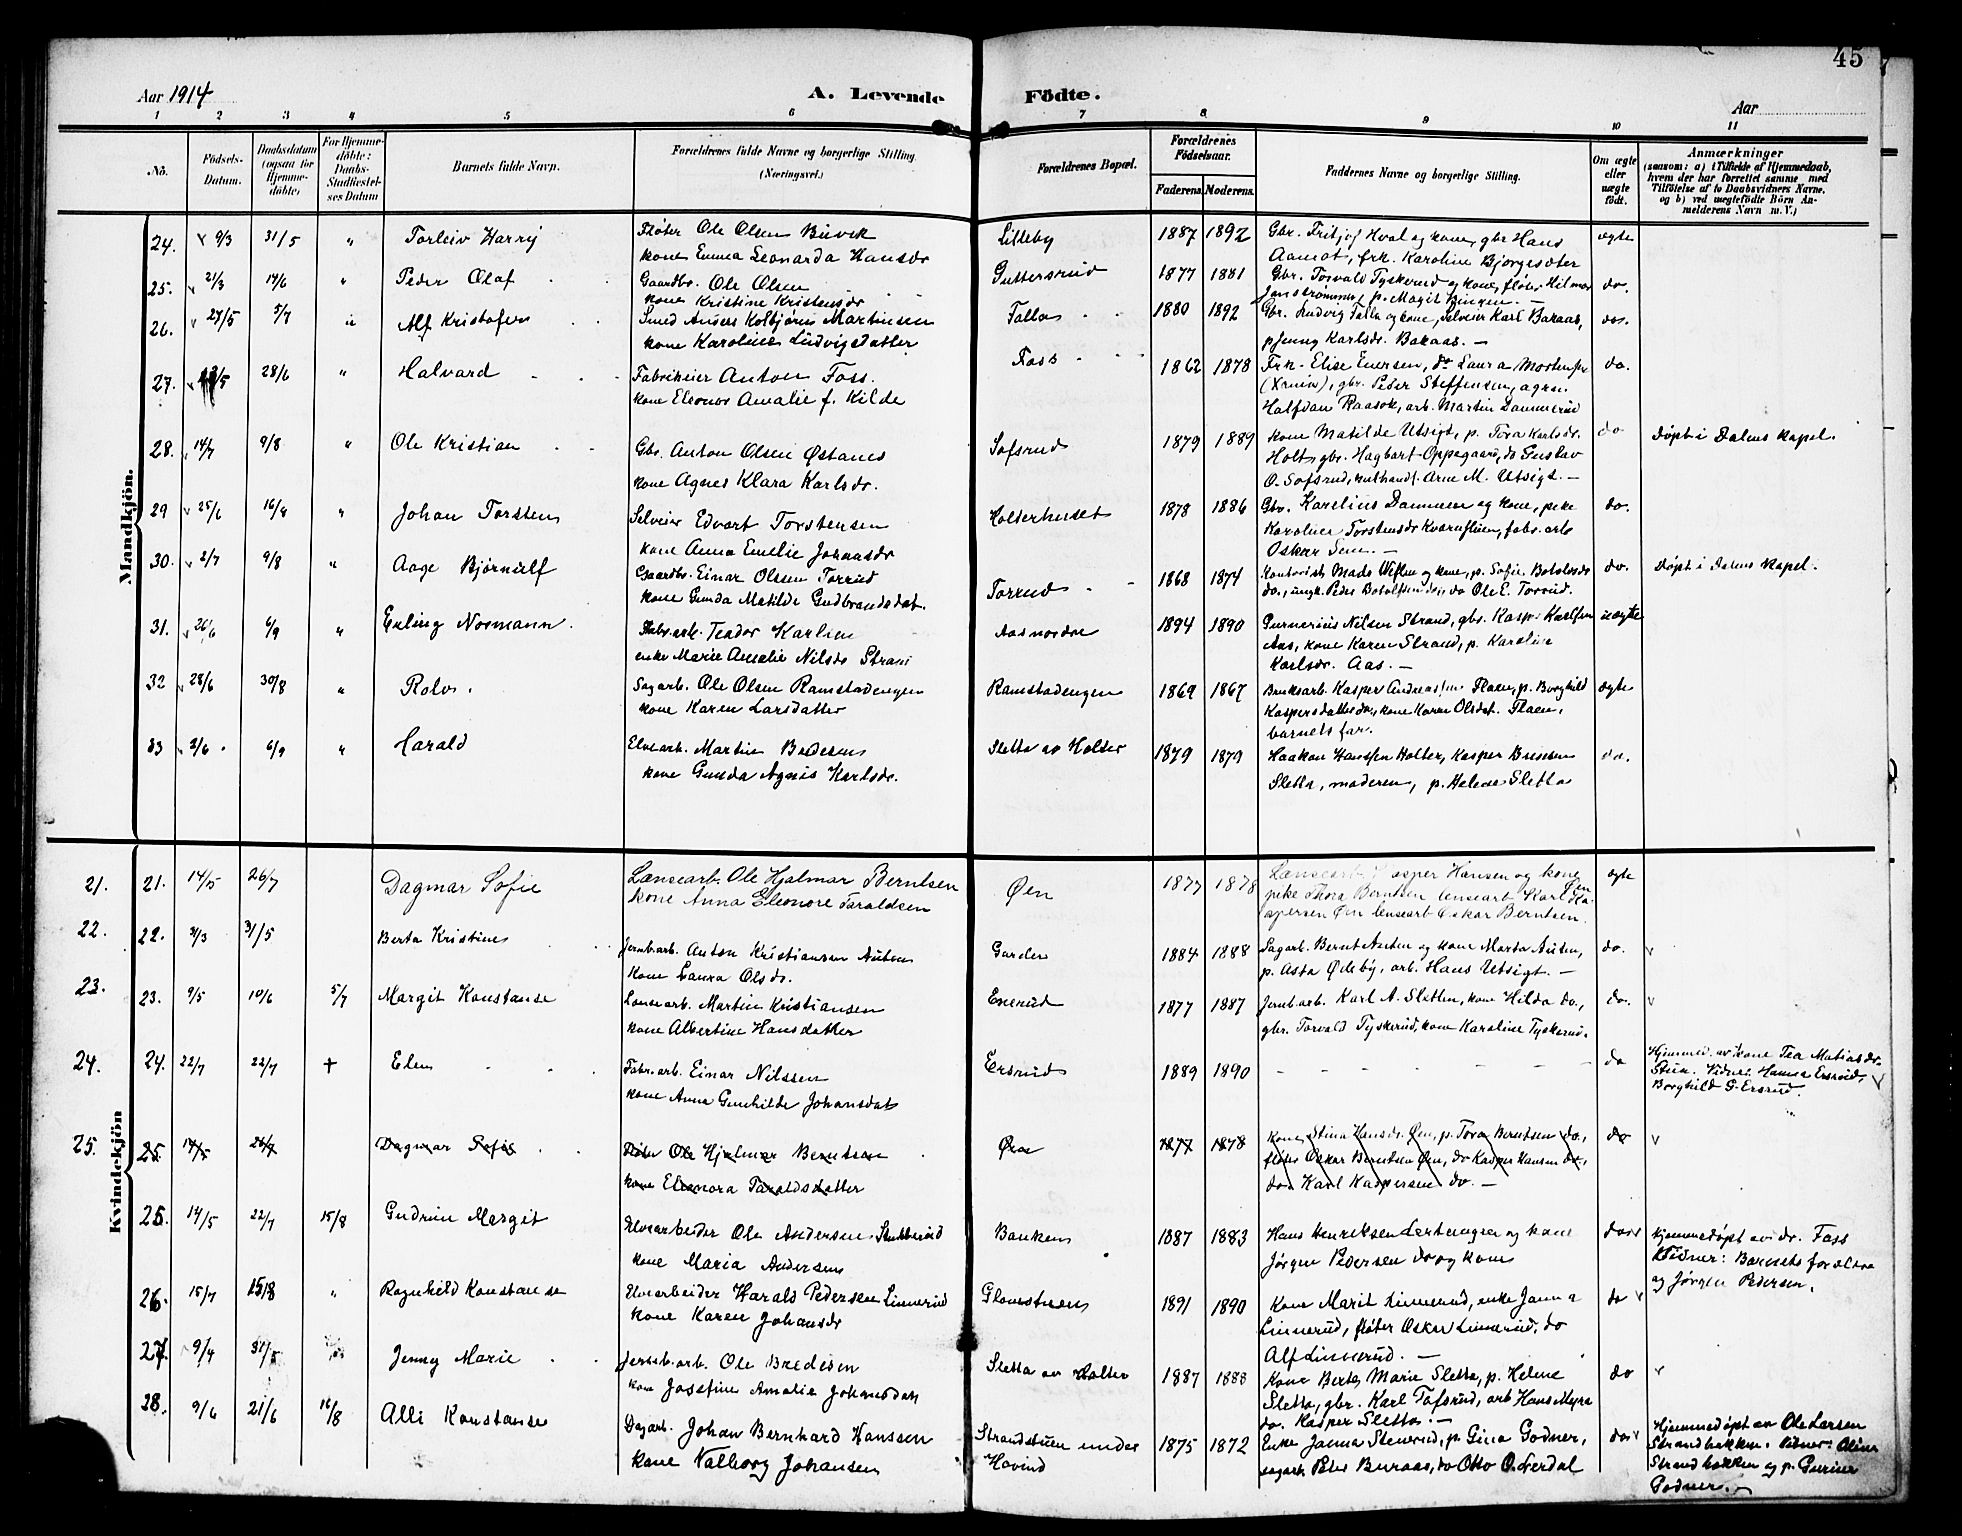 45
Aar 1914
A. Levende Födte.
Aar
1 2 3 4 5 6 7 8 9 10 11
No.
Födsels-Datum.
Daabsdatum (ogsaa for Hjemme-döbte)
For Hjemme-döbte: Daabs-Stadfæstel-ses Datum
Barnets fulde Navn.
Forældrenes fulde Navne og borgerlige Stilling. (Næringsvei.)
Forældrenes Bopæl.
Forældrenes Födselsaar.
Faderens. Moderens.
Faddernes Navne og borgerlige Stilling.
Om ægte eller uægte födt.
Anmærkninger
(saasom: a) i Tilfælde af Hjemmedaab,
hvem der har forrettet samme med
Tilföielse af to Daabsvidners Navne,
og b) ved uægtefödte Börn An-
melderens Navn m. V.)
Mandkjön.
24. 9/3 31/5 " Torleiv Harry
Fløter Ole Olsen Buvek
kone Emma Leonarda Hansdr
Lilleby 1887 1892
Gbr. Fritjof Hval og kone, gbr Hans
Aamot, frk. Karoline Bjørgesæter
ægte
25. 21/3 14/6 " Peder Olaf
Gaardbr. Ole Olsen
kone Kristine Kristensdr
Guttersrud 1877 1881
Gbr. Torvald Tyskerud og kone, fløter Hilmar
p. Magit Bingen. —
do.
26. 27/5 5/7 " Alf Kristofer
Smed Anders Kolbjørn Martinsen
kone Karoline Ludvigsdatter
Falla 1880 1892
Gbr. Ludvig Falla og kone, Selveier Karl Bakaas,
p Jenny Karlsdr. Bakaas. —
do.
27. 28/6 " Halvard
Fabrikeier Anton Foss.
kone Eleonor Amalie f. Kilde
Foss 1862 1878
Frk. Elise Eversen, do Laura Mortensen
(Xrania), gbr. Peder Steffensen, agrn.
Halfdan Raasok, arb. Martin Dammerud
do.
28. 14/7 9/8 " Ole Kristian
Gbr. Anton Olsen Østanes
kone Agnes Klara Karlsdr.
Sofsrud 1879 1889
kone Matilde Utsigt, p. Tora Karlsdr.
Holt, gbr. Hagbart Oppegaard, do Gustav
O. Sofsrud, kulhandl. Arne M. Utsigt. —
do
Døpt i Dalens kapel.
29 25/6 16/8 " Johan Torsten
Selveier Edvart Torstensen
kone Anna Emelie Johansdr
Holterhuset 1878 1886
Gbr. Karelius Dammen og kone, pike
Karoline Torstensdr Kværnstuen, fabr. arb
Oskar Sem. —
do.
30. 2/7 9/8 " Aage Bjørnulf
Gaardbr. Einar Olsen Torrud
kone Gunda Matilde Gudbrandsdat.
Torrud 1868 1874
Kontorist Mads Weflen og kone, p. Sofie Botolvsdr
do., ungk. Peder Botolfsen do, do Ole E. Torrud.
do.
Døpt i Dalens kapel.
31. 26/6 6/9 " Erling Normann.
Fabr. arb. Teodor Karlsen
enke Marie Amalie Nilsdr Strand
Aas nordre 1894 1890
Gunerius Nilsen Strand, gbr. Kasper Karlsen
Aas, kone Karen Strand, p. Karoline
Karlsdr. Aas. —
uægte
32 28/6 30/8 " Rolv.
Sagarb. Ole Olsen Ramstadengen
kone Karen Larsdatter
Ramstadengen 1869 1867
Bruksarb. Kasper Andreassen Flaen, p. Borghild
Kaspersdatter do, kone Karen Olsdat. Flaen,
barnets far.
ægte
33 2/6 6/9 " Harald
Elvearb. Martin Bredesen
kone Gunda Agnes Karlsdr.
Sletta av Holter 1879 1879
Haakon Hanssen Holter, Kasper Bredesen
Sletta, moderen, p. Helene Sletta
do.
Kvindekjön
21. 21. 14/5 26/7 Dagmar Sofie
Lænsearb. Ole Hjalmar Berntsen
kone Anna Eleonore Taraldsen
Øen 1877 1878
Lænsearb. Kasper Hansen og kone
pike Thora Berntsen lensearb Karl Ka-
spersen Øen lensearb Oskar Berntsen.
ægte
22. 22. 3/3 31/5 Berta Kristine
Jernb. arb. Anton Kristiansen Auten
kone Laura Olsdr.
Garder 1884 1888
Sagarb. Bernt Auten og kone Marta Auten,
p. Asta Ødeby, arb. Hans Utsigt. —
do.
23. 23. 9/5 10/6 5/7 Margit Konstanse
Lensearb. Martin Kristiansen
kone Albertine Hansdatter
Enerud 1877 1887
Jernb arb. Karl A. Sletten, kone Hilda do,
gbr. Torvald Tyskerud, kone Karoline Tyskerud.
do.
24. 24. 22/7 22/7 + Elen
Fabr. arb. Einar Nilssen
kone Anna Gunhilde Johansdat
Ersrud 1889 1890
do
Hjemmed. av kone Tea Matiasdr.
Stua. Vidner Hanna Ersrud,
Borghild G. Ersrud.
25. 25. 14/5 26/7 Dagmar Sofie
Fløter Ole Hjalmar Berntsen
kone Eleonora Taraldsdatter
Øen 1877 1878
Kone Stina Hansdr. Øen, p. Tora Berntsen do,
fløter Oskar Berntsen Øen, do Kasper Hansen do,
do Karl Kaspersen do. —
do
25. 14/5 22/7 15/8 Gudrun Margit
Elvearbeider Ole Andersen Stubberud
kone Maria Andersen
Banken 1887 1883
Hans Henriksen Lertungen og kone
Jørgen Pedersen do og kone
do
Hjemmedøpt av dr. Foss
Vidner: Barnets forældre
og Jørgen Pedersen.
26. 15/7 15/8 " Ragnhild Konstanse
Elvearbeider Harald Pedersen Linnerud
kone Karen Johansdr
Glomstuen 1891 1890
Kone Marit Linnerud, enke Janna
Linnerud, fløter Oskar Linnerud, do
Alf Linnerud. —
do
27. 9/4 31/5 Jenny Marie
Jernb. arb. Ole Bredesen
kone Josefine Amalie Johansdat
Sletta av Holter 1887 1888
Kone Berte Marie Sletta, p. Helene
Sletta, gbr. Karl Tofsrud, arb Hans Myra
do. Kasper Sletta. —
do
28. 9/6 21/6 16/8 Alli Konstanse
Dagarb. Johan Bernhard Hanssen
kone Valborg Johansen
Strandstuen under
Hovind 1875 1872
Enke Janna Stenerud, p. Gina Godner,
sagarb Peter Buraas, do Otto O. Nerdal
do
Hjemmedøpt av Ole Larsen
Strandbakken. Vidner: Oline
Strandbakken og p. Gurine
Godner. —